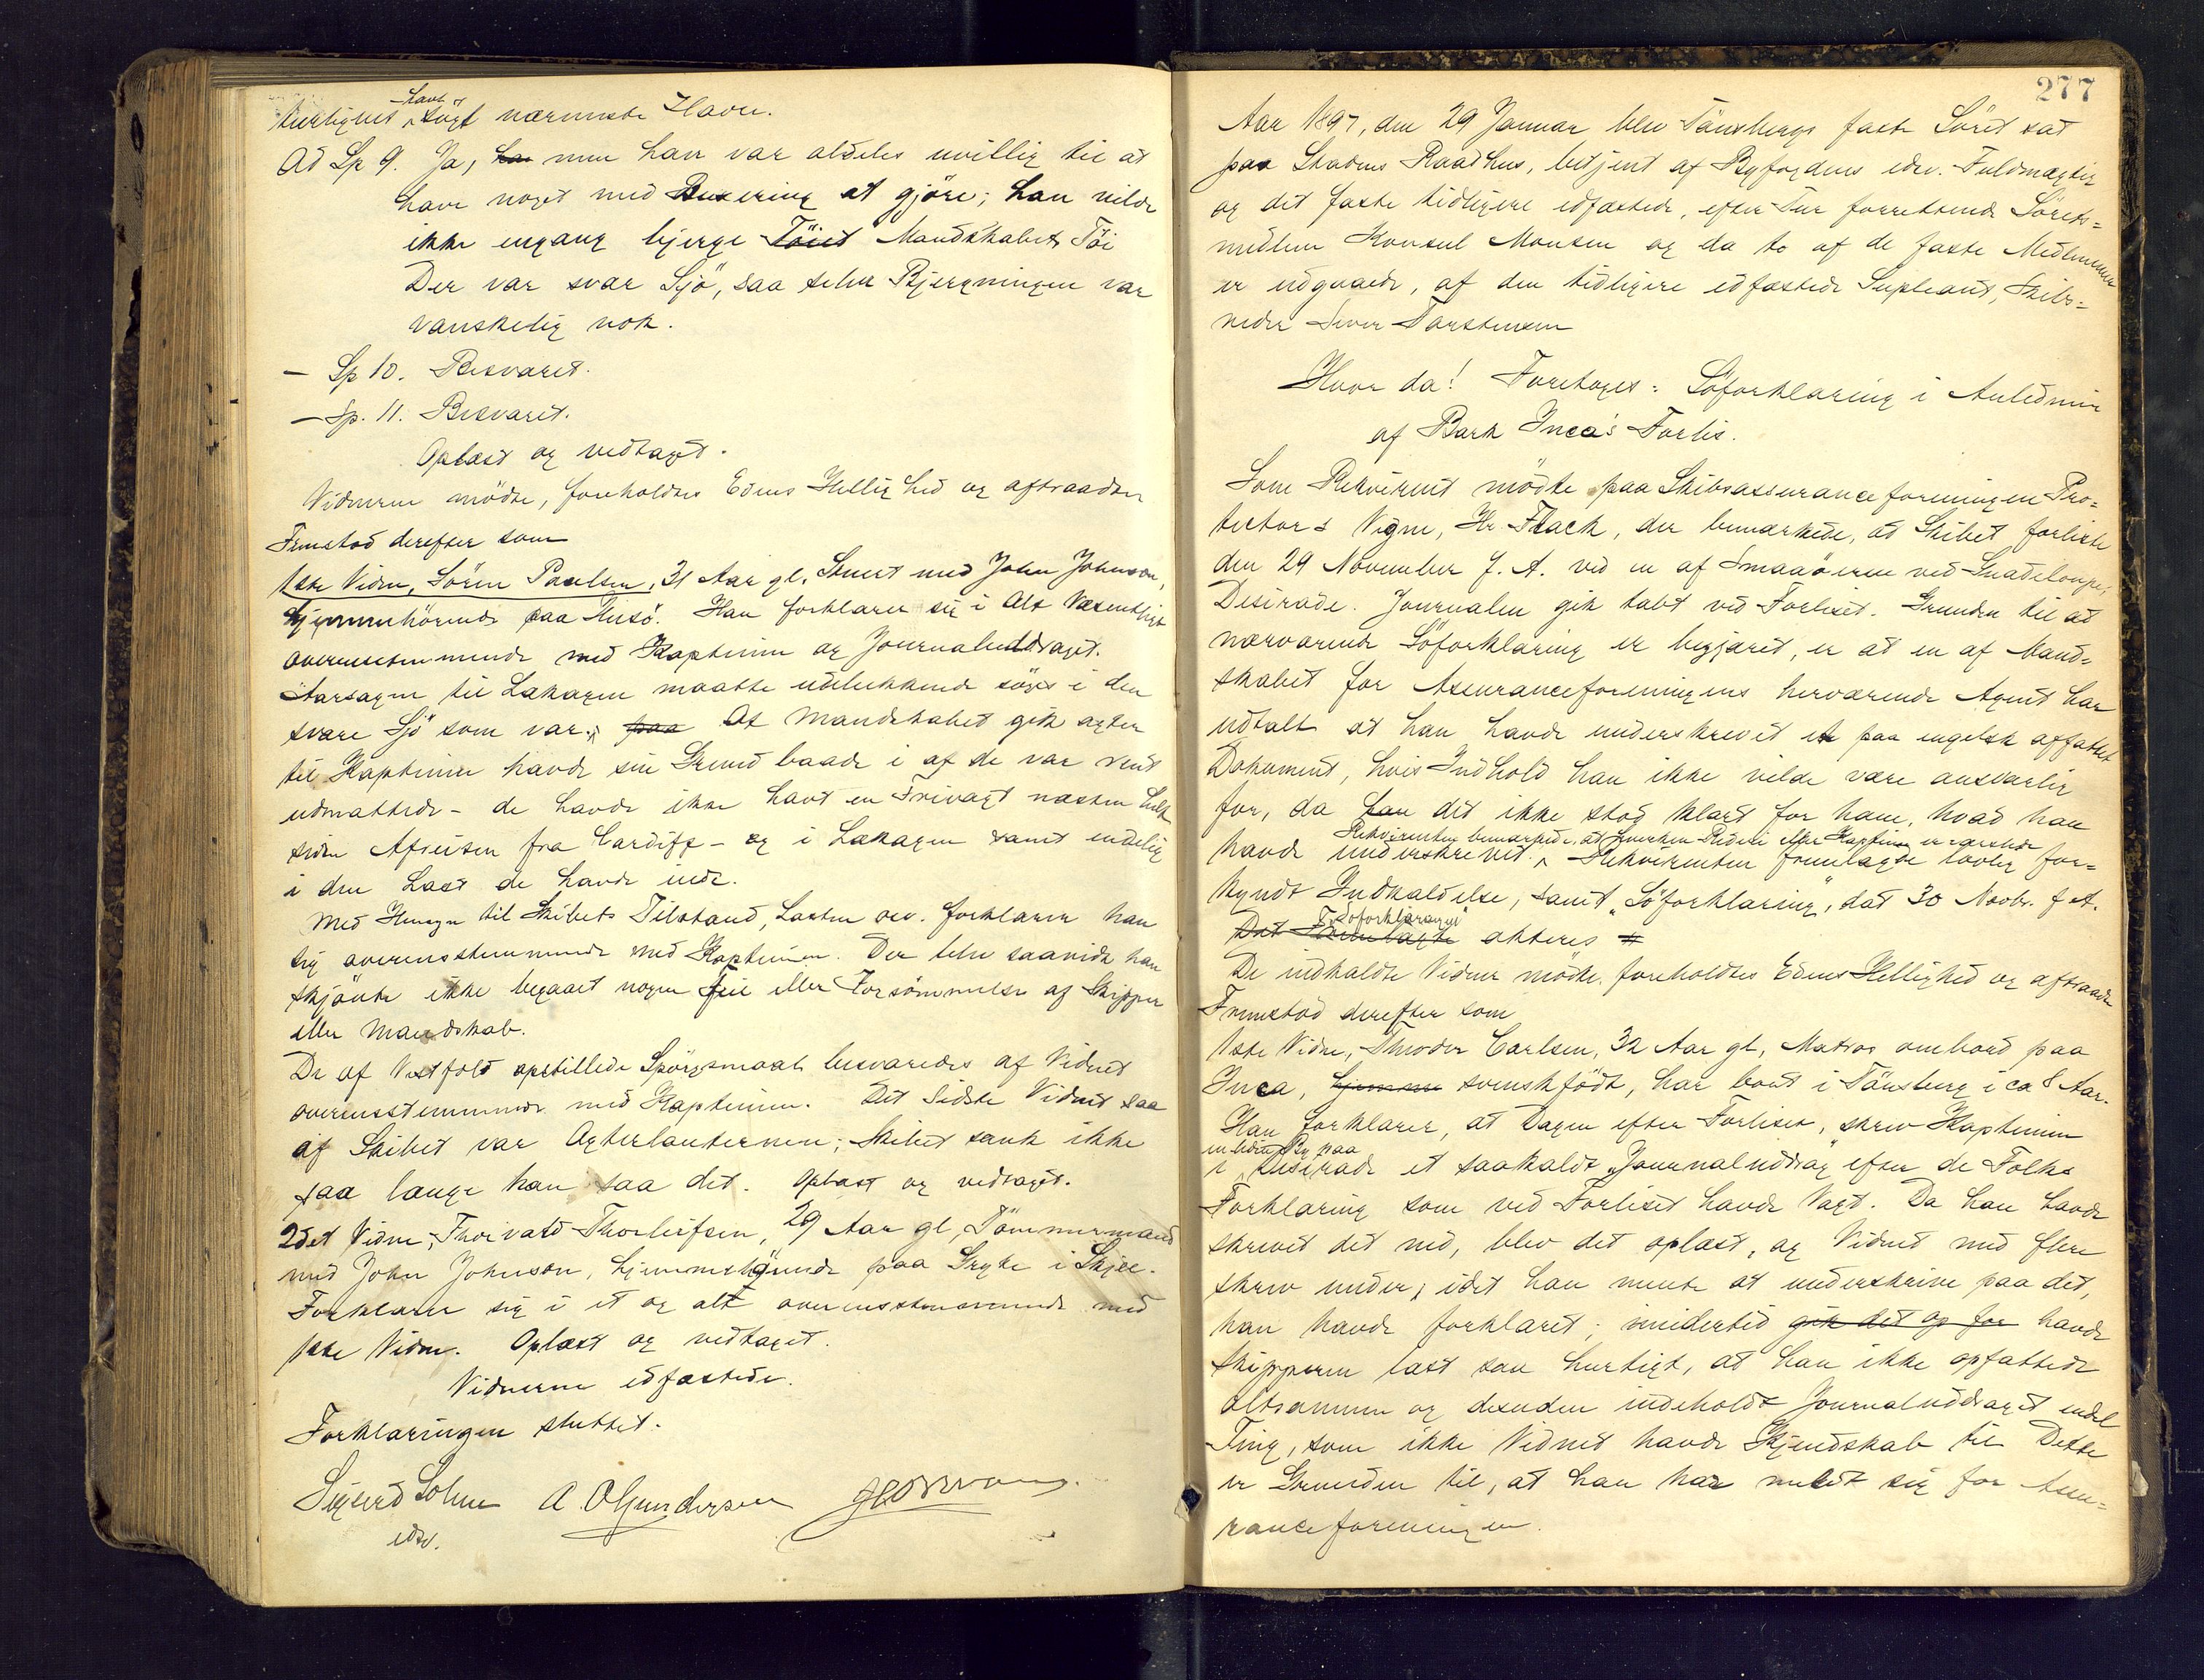 havt
turligvis søgt nærmeste Havn.
Ad Sp 9. Ja, han men han var aldeles uvillig til at
have noget med Buxering at gjöre; han vilde
ikke engang bjerge Töiet Mandskabets Töi
Der var svær Sjö, saa selve Bjergningen var
vanskelig nok.
— Sp 10. Besvaret.
— Sp. 11. Besvaret.
Oplæst og vedtaget.
Vidnerne mödte, foreholdtes Edens Hellighed og aftraadte
Fremstod derefter som
1ste Vidne, Sören Paulsen, 31 Aar gl. Stuert med John Johnson,
hjemmehörende paa Husö. Han forklarer sig i Alt Væsentligt
overensstemmende med Kapteinen og Journaluddraget.
Aarsagen til Lækagen maatte udelukkende söges i den
svære Sjö som var. paa At Mandskabet gik agter
til Kapteinen havde sin Grund baade i at de var rent
udmattede - de havde ikke havt en Frivagt næsten hele
siden Afreisen fra Cardiff - og i Lækagen samt endelig
i den Last de havde inde.
Med Hensyn til Skibets Tilstand, Lasten osv. forklarer han
sig overensstemmende med Kapteinen. Der blev saavidt han
skjönte ikke begaaet nogen Feil eller Forsömmelse af Skipper
eller Mandskab.
De af Vestfold opstillede Spörgsmaal besvaredes af Vidnet
overensstemmende med Kapteinen. Det Sidste Vidnet saa
af Skibet var Agterlanternen; Skibet sank ikke
saa længe han saa det. Oplæst og vedtaget.
2det Vidne, Thorvald Thorleifsen, 29 Aar gl, Tömmermand
med John Johnson, hjemmehörende paa Gryte i Skjee.
Forklarer sig i et og alt overensstemmende med
1ste Vidne. Oplæst og vedtaget.
Vidnerne edfæstede.
Forklaringen sluttet.
Sigurd Solum A. O Gundersen
edsv.
277
Aar 1897, den 29 Januar blev Tönsbergs faste Söret sat
paa Stadens Raadhus, betjent af Byfogdens edsv. Fuldmægtig
og det faste tidligere edfæstede, efter Tur forrettende Sörets=
medlem Konsul Monsen og da to af de faste Medlemmer
er udgaaede, af den tidligere edfæstede Supleant, Skibs=
reder Sever Torstensen
Hvor da! Foretoges: Söforklaring i Anledning
af Bark Inca's Forlis.
Som Rekvirent mödte paa Skibsassuranceforeningen Pro=
tectors Vegne, Hr. Flack, der bemærkede, at Skibet forliste
den 29 November f. A. ved en af Smaaöerne ved Guadeloupe,
Desirade. Journalen gik tabt ved Forliset. Grunden til at
nærværende Söforklaring er begjæret, er at en af Mand=
skabet for Assuranceforeningens herværende Agent har
udtalt at han havde underskrevet et paa engelsk affattet
Dokument, hvis Indhold han ikke vilde være ansvarlig
for, da han det ikke stod klart for ham, hvad han
Rekvirenten bemærkede, at hverken Rederi eller Kaptein er arstede
havde underskrevet. Rekvirenten fremlagde lovlig for=
kyndt Indkaldelse, samt "Söforklaring", dat 30 Novbr. f A.
"Söforklaringen"
Det Fremlagte akteres #
De indkaldte Vidner mödte, foreholdtes Edens Hellighed og aftraadte
Fremstod derefter som
1ste Vidne, Theodor Carlsen, 32 Aar gl, Matros ombord paa
Inca, hjemme svenskfödt, har boet i Tönsberg i ca 8 Aar.
Han forklarer, at Dagen efter Forliset, skrev Kapteinen
en liden By paa
i Desirade et saakaldt "Journaluddrag" efter de Folks
Forklaring som ved Forliset havde Vagt. Da han havde
skrevet det ned, blev det oplæst, og Vidnet med flere
skrev under, idet han mente at underskrive paa det,
han havde forklaret; imidlertid gik det op for havde
Skipperen læst saa hurtigt, at han ikke opfattede
altsammen og desuden indeholdt Journaluddraget endel
Ting, som ikke Vidnet havde Kjendskab til Dette
er Grunden til, at han har meldt sig for Assu=
ranceforeningen.